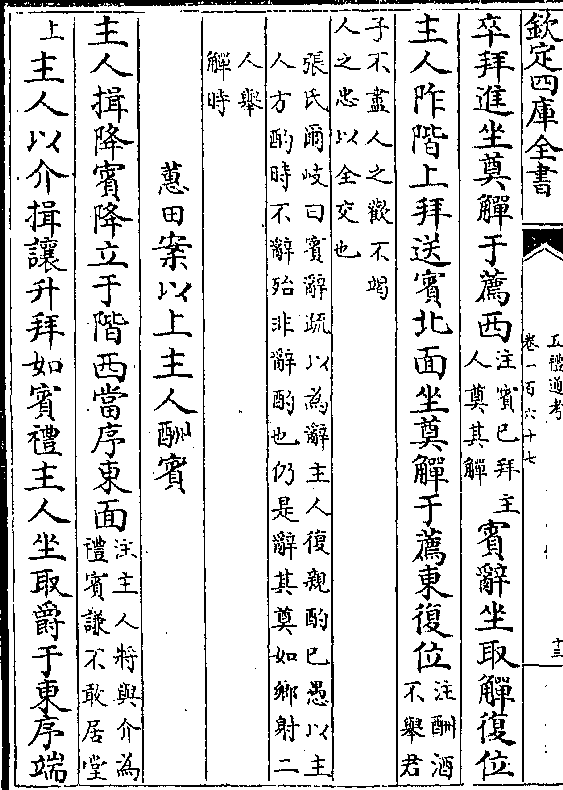 欽定四庫全書
五禮通考
卷一百六十七
十三
卒拜進坐奠觶于薦西注賓已拜主人奠其觶賓辭坐取觶復位
主人阼階上拜送賓北面坐奠觶于薦東復位注酬酒不舉君
子不盡人之歡不竭人之忠以全交也
張氏爾岐曰賓辭疏以為辭主人復親酌已愚以主
人方酌時不辭殆非辭酌也仍是辭其奠如鄉射二
人舉觶時
蕙田案以上主人酬賓
主人揖降賓降立于階西當序東面注主人將與介為禮賓謙不敢居堂
上主人以介揖讓升拜如賓禮主人坐取爵于東序端